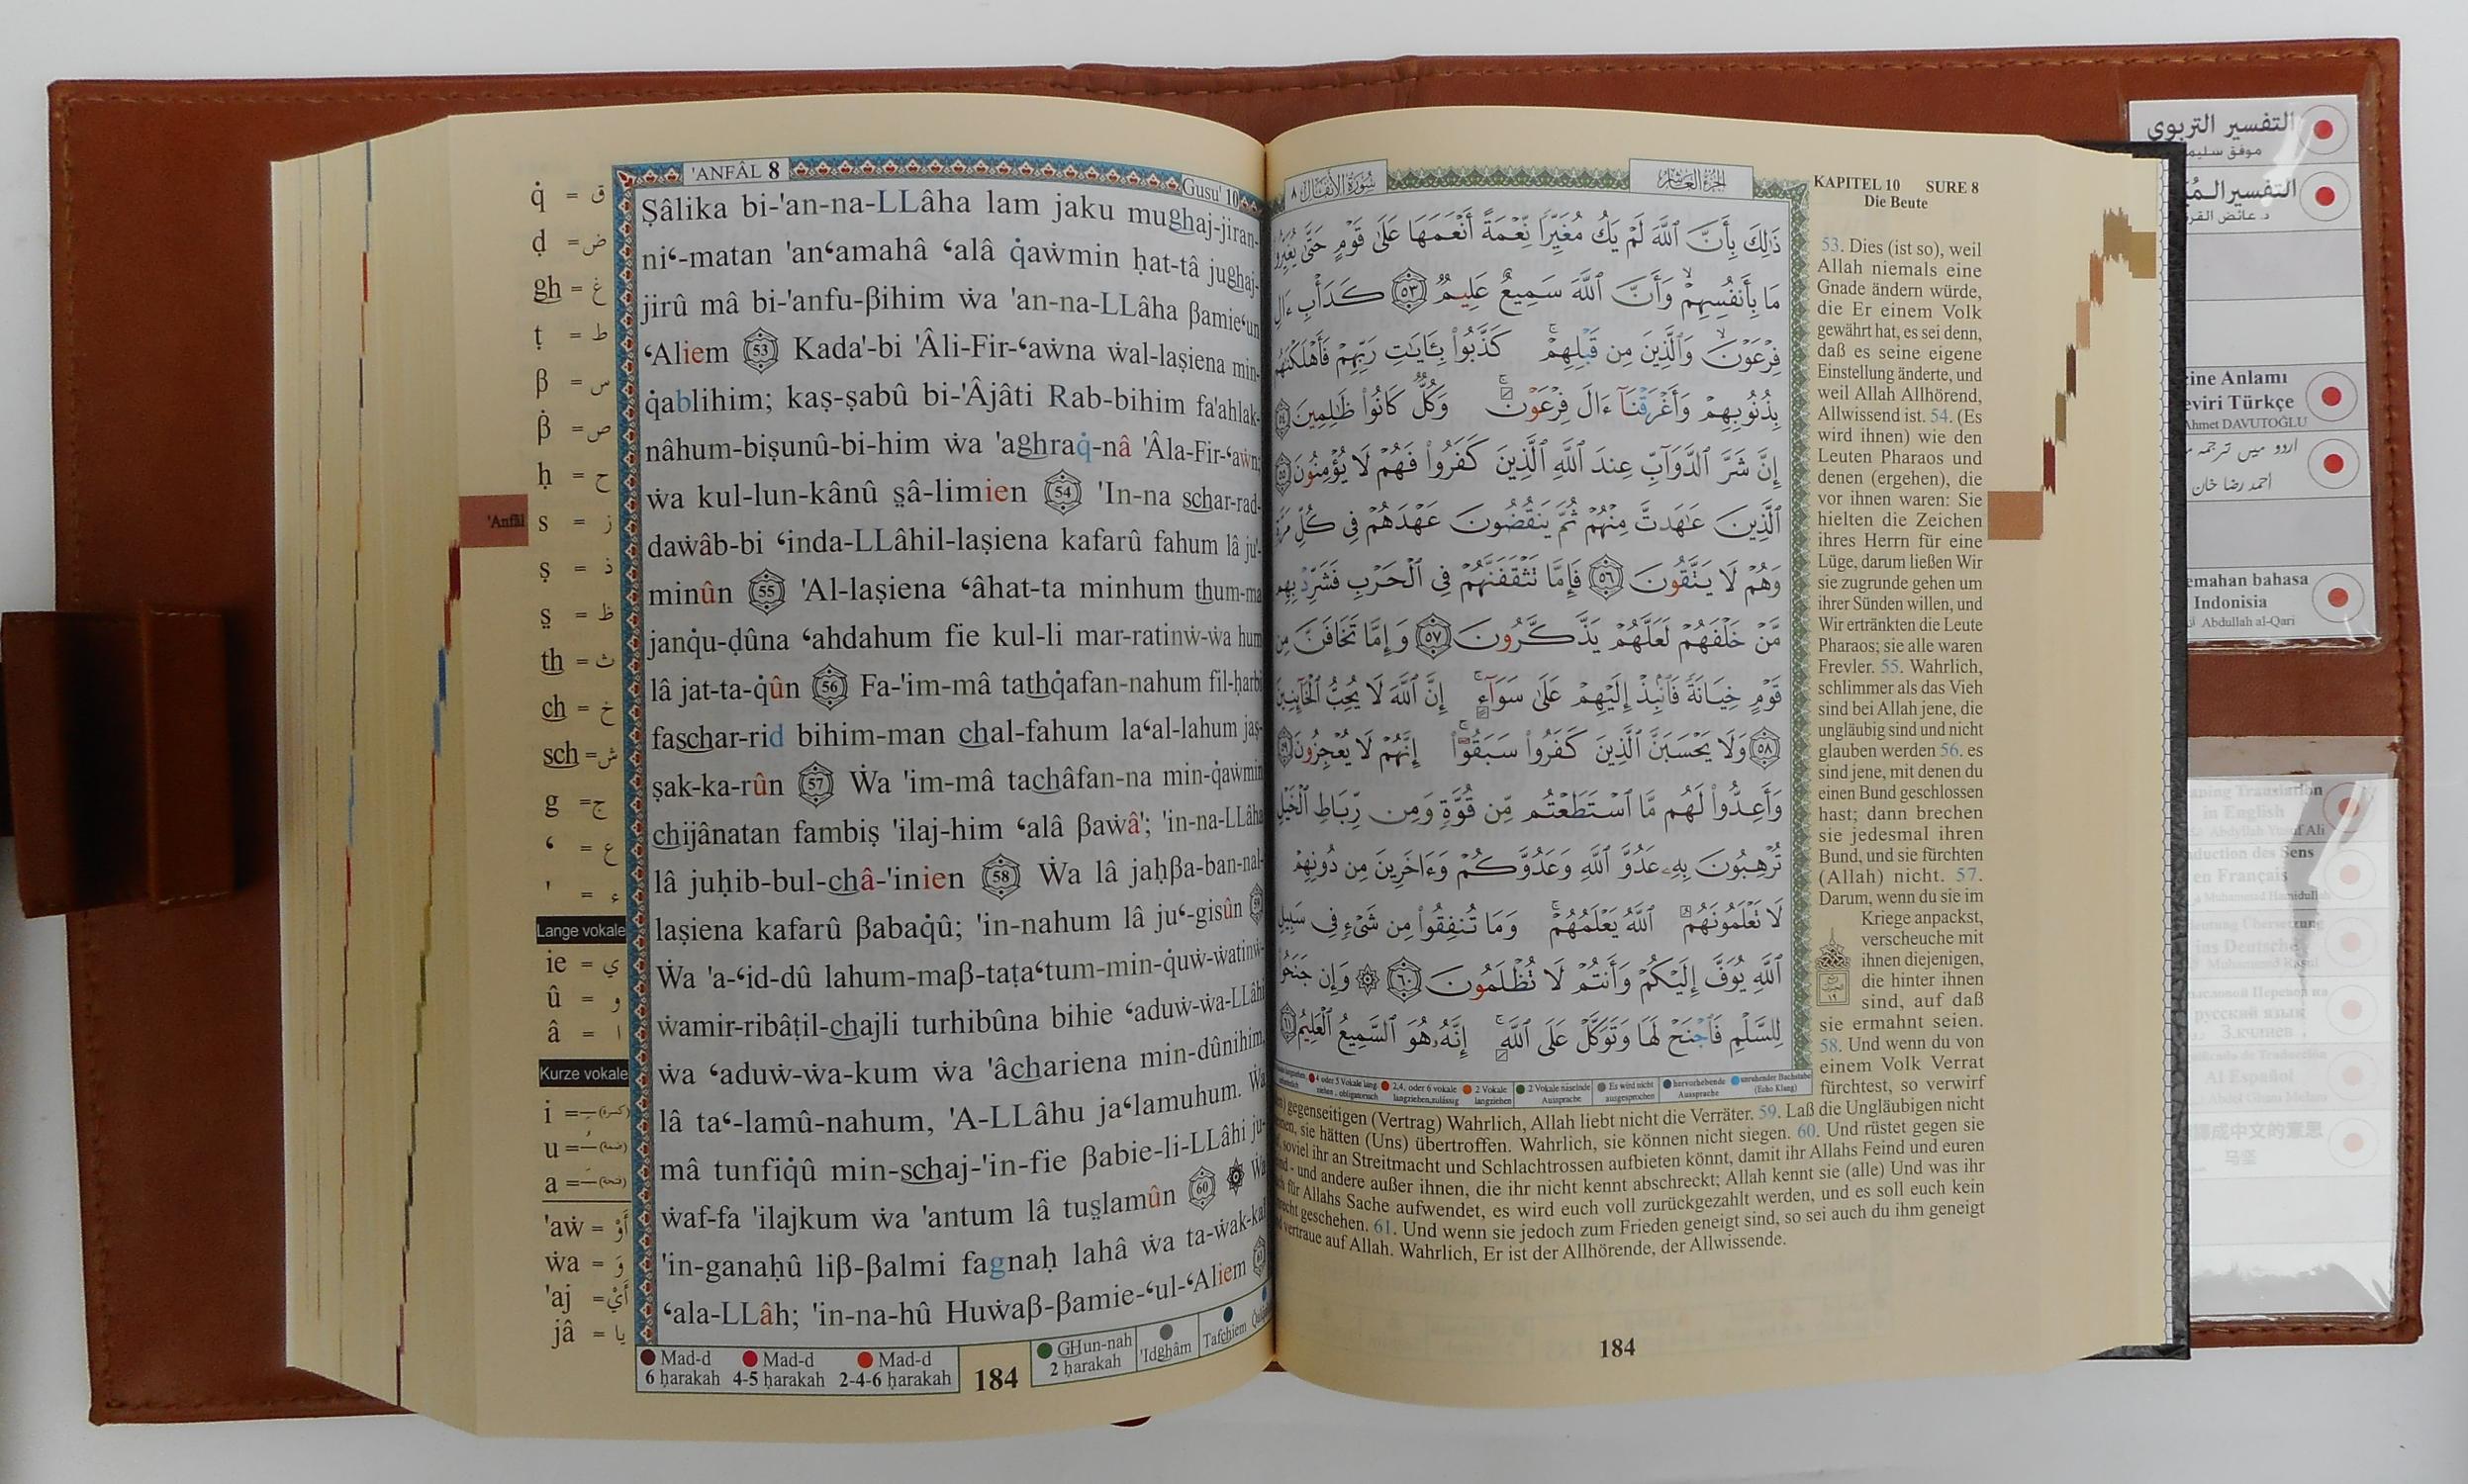 'ANFÂL 8
Gusu' 10
q̇ = ق
ḍ = ض
gh = غ
ṭ = ط
β = س
β̇ = ص
ḥ = ح
s = ز
ṣ = ذ
s̤ = ظ
th = ث
ch = خ
sch = ش
g = ج
‘ = ع
' = ء
Lange vokale
ie = ي
û = و
â = ا
Kurze vokale
i = (كسرة)
u = (ضمة)
a = (فتحة)
'aẇ = أَوْ
ẇa = وَ
'aj = أَيْ
jâ = يا
'Anfâl
Ṣâlika bi-'an-na-LLâha lam jaku mughaj-jiran-
ni‘-matan 'an‘amahâ ‘alâ q̇aẇmin ḥat-tâ jughaj-
jirû mâ bi-'anfu-βihim ẇa 'an-na-LLâha βamie‘un
‘Aliem 53 Kada'-bi 'Âli-Fir-‘aẇna ẇal-laṣiena min-
q̇ablihim; kaṣ-ṣabû bi-'Âjâti Rab-bihim fa'ahlak-
nâhum-biṣunû-bi-him ẇa 'aghraq̇-nâ 'Âla-Fir-‘aẇn;
ẇa kul-lun-kânû s̤â-limien 54 'In-na schar-rad-
daẇâb-bi ‘inda-LLâhil-laṣiena kafarû fahum lâ ju'-
minûn 55 'Al-laṣiena ‘âhat-ta minhum thum-ma
janq̇u-ḍûna ‘ahdahum fie kul-li mar-ratinẇ-ẇa hum
lâ jat-ta-q̇ûn 56 Fa-'im-mâ tathq̇afan-nahum fil-ḥarbi
faschar-rid bihim-man chal-fahum la‘al-lahum jaṣ-
ṣak-ka-rûn 57 Ẇa 'im-mâ tachâfan-na min-q̇aẇmin
chijânatan fambiṣ 'ilaj-him ‘alâ βaẇâ'; 'in-na-LLâha
lâ juḥib-bul-châ-'inien 58 Ẇa lâ jaḥβa-ban-nal-
laṣiena kafarû βabaq̇û; 'in-nahum lâ ju‘-gisûn 59
Ẇa 'a-‘id-dû lahum-maβ-taṭa‘tum-min-q̇uẇ-ẇatinẇ-
ẇamir-ribâṭil-chajli turhibûna bihie ‘aduẇ-ẇa-LLâhi
ẇa ‘aduẇ-ẇa-kum ẇa 'âchariena min-dûnihim,
lâ ta‘-lamû-nahum, 'A-LLâhu ja‘lamuhum. Ẇa
mâ tunfiq̇û min-schaj-'in-fie βabie-li-LLâhi ju-
ẇaf-fa 'ilajkum ẇa 'antum lâ tus̤lamûn 60 Ẇa
'in-ganaḥû liβ-βalmi fagnaḥ lahâ ẇa ta-ẇak-kal
‘ala-LLâh; 'in-na-hû Huẇaβ-βamie-‘ul-‘Aliem 61
Mad-d 6 ḥarakah
Mad-d 4-5 ḥarakah
Mad-d 2-4-6 ḥarakah
184
GHun-nah 2 ḥarakah
'Idghâm
Tafchiem
سُورَةُ الأَنفَال ٨
الجزء العاشر
ذَٰلِكَ بِأَنَّ ٱللَّهَ لَمْ يَكُ مُغَيِّرًا نِّعْمَةً أَنْعَمَهَا عَلَىٰ قَوْمٍ حَتَّىٰ يُغَيِّرُوا۟
مَا بِأَنفُسِهِمْ وَأَنَّ ٱللَّهَ سَمِيعٌ عَلِيمٌ ٥٣ كَدَأْبِ ءَالِ
فِرْعَوْنَ وَٱلَّذِينَ مِن قَبْلِهِمْ كَذَّبُوا۟ بِـَٔايَٰتِ رَبِّهِمْ فَأَهْلَكْنَٰهُم
بِذُنُوبِهِمْ وَأَغْرَقْنَآ ءَالَ فِرْعَوْنَ وَكُلٌّ كَانُوا۟ ظَٰلِمِينَ ٥٤
إِنَّ شَرَّ ٱلدَّوَآبِّ عِندَ ٱللَّهِ ٱلَّذِينَ كَفَرُوا۟ فَهُمْ لَا يُؤْمِنُونَ ٥٥
ٱلَّذِينَ عَٰهَدتَّ مِنْهُمْ ثُمَّ يَنقُضُونَ عَهْدَهُمْ فِى كُلِّ مَرَّةٍ
وَهُمْ لَا يَتَّقُونَ ٥٦ فَإِمَّا تَثْقَفَنَّهُمْ فِى ٱلْحَرْبِ فَشَرِّدْ بِهِم
مَّنْ خَلْفَهُمْ لَعَلَّهُمْ يَذَّكَّرُونَ ٥٧ وَإِمَّا تَخَافَنَّ مِن
قَوْمٍ خِيَانَةً فَٱنۢبِذْ إِلَيْهِمْ عَلَىٰ سَوَآءٍ إِنَّ ٱللَّهَ لَا يُحِبُّ ٱلْخَآئِنِينَ
٥٨ وَلَا يَحْسَبَنَّ ٱلَّذِينَ كَفَرُوا۟ سَبَقُوٓا۟ إِنَّهُمْ لَا يُعْجِزُونَ ٥٩
وَأَعِدُّوا۟ لَهُم مَّا ٱسْتَطَعْتُم مِّن قُوَّةٍ وَمِن رِّبَاطِ ٱلْخَيْلِ
تُرْهِبُونَ بِهِۦ عَدُوَّ ٱللَّهِ وَعَدُوَّكُمْ وَءَاخَرِينَ مِن دُونِهِمْ
لَا تَعْلَمُونَهُمُ ٱللَّهُ يَعْلَمُهُمْ وَمَا تُنفِقُوا۟ مِن شَىْءٍ فِى سَبِيلِ
ٱللَّهِ يُوَفَّ إِلَيْكُمْ وَأَنتُمْ لَا تُظْلَمُونَ ٦٠ وَإِن جَنَحُوا۟
لِلسَّلْمِ فَٱجْنَحْ لَهَا وَتَوَكَّلْ عَلَى ٱللَّهِ إِنَّهُۥ هُوَ ٱلسَّمِيعُ ٱلْعَلِيمُ ٦١
KAPITEL 10 SURE 8
Die Beute
53. Dies (ist so), weil
Allah niemals eine
Gnade ändern würde,
die Er einem Volk
gewährt hat, es sei denn,
daß es seine eigene
Einstellung änderte, und
weil Allah Allhörend,
Allwissend ist. 54. (Es
wird ihnen) wie den
Leuten Pharaos und
denen (ergehen), die
vor ihnen waren: Sie
hielten die Zeichen
ihres Herrn für eine
Lüge, darum ließen Wir
sie zugrunde gehen um
ihrer Sünden willen, und
Wir ertränkten die Leute
Pharaos; sie alle waren
Frevler. 55. Wahrlich,
schlimmer als das Vieh
sind bei Allah jene, die
ungläubig sind und nicht
glauben werden 56. es
sind jene, mit denen du
einen Bund geschlossen
hast; dann brechen
sie jedesmal ihren
Bund, und sie fürchten
(Allah) nicht. 57.
Darum, wenn du sie im
Kriege anpackst,
verscheuche mit
ihnen diejenigen,
die hinter ihnen
sind, auf daß
sie ermahnt seien.
58. Und wenn du von
einem Volk Verrat
fürchtest, so verwirf
gegenseitigen (Vertrag) Wahrlich, Allah liebt nicht die Verräter. 59. Laß die Ungläubigen nicht
sie hätten (Uns) übertroffen. Wahrlich, sie können nicht siegen. 60. Und rüstet gegen sie
soviel ihr an Streitmacht und Schlachtrossen aufbieten könnt, damit ihr Allahs Feind und euren
- und andere außer ihnen, die ihr nicht kennt abschreckt; Allah kennt sie (alle) Und was ihr
für Allahs Sache aufwendet, es wird euch voll zurückgezahlt werden, und es soll euch kein
geschehen. 61. Und wenn sie jedoch zum Frieden geneigt sind, so sei auch du ihm geneigt
vertraue auf Allah. Wahrlich, Er ist der Allhörende, der Allwissende.
4 oder 5 Vokale lang ziehen, obligatorisch
2,4, oder 6 vokale langziehen,zulässig
2 Vokale langziehen
2 Vokale näselnde Aussprache
Es wird nicht ausgesprochen
hervorhebende Aussprache
(Echo Klang)
184
التفسير التربوي
موفق سليم
التفسير
د. عائض القر
ine Anlamı
eviri Türkçe
Ahmet DAVUTOĞLU
اردو میں ترجمہ
احمد رضا خان
emahan bahasa
Indonisia
Abdullah al-Qari
Translation
in English
Ali
duction des Sens
en Français
Muhammad Hamidullah
Übersetzung
ins Deutsche
русский язык
Al Español